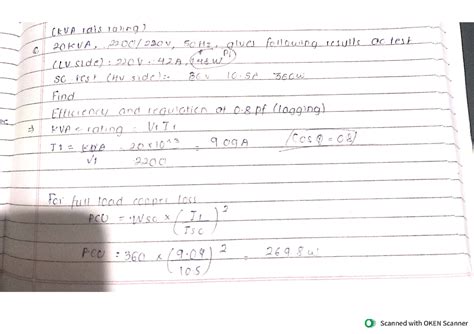 (KVA rating)
20KVA, 2200/220V, 50Hz, gives following results oc test
(LV side): 220V 4.2A, 148W Pi
SC test (HV side)= 86V 10.5A 360W
Find
Efficiency and regulation at 0.8 pf (lagging)
⇒ KVA rating = V1 I1
I1 = KVA / V1 = 20×10^+3 / 2200 = 9.09A [cos φ = 0.8]
For full load copper loss
PCU = WSC × (I1 / ISC)^2
PCU = 360 × (9.09 / 10.5)^2 = 269.8w
Scanned with OKEN Scanner